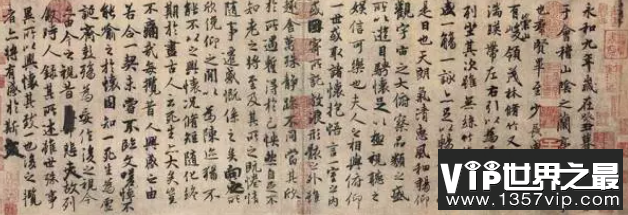 永和九年歲在癸丑暮
于會稽山陰之蘭亭
也群賢畢至少長
有崇山峻領茂林脩竹又
湍暎帶左右引以為
列坐其次雖無絲竹
盛一觴一詠亦足以暢
是日也天朗氣清惠風和暢仰
觀宇宙之大俯察品類之盛
所以遊目騁懷足以極視聽之
娛信可樂也夫人之相與俯仰
一世或取諸懷抱悟言一室之內
或因寄所託放浪形骸之外雖
趣舍萬殊靜躁不同當其欣
於所遇蹔得於己快然自足不
知老之將至及其所之既惓情
隨事遷感慨係之矣向之所
欣俛仰之間以為陳迹猶不
能不以之興懷況脩短隨化終
期於盡古人云死生亦大矣豈
不痛哉每攬昔人興感之由
若合一契未嘗不臨文嗟悼不
能喻之於懷固知一死生為虛
誕齊彭殤為妄作後之視今
亦由今之視昔悲夫故列
敘時人錄其所述雖世殊事
異所以興懷其致一也後之攬
者亦將有感於斯文
VIP世界之最
www.1357vip.com